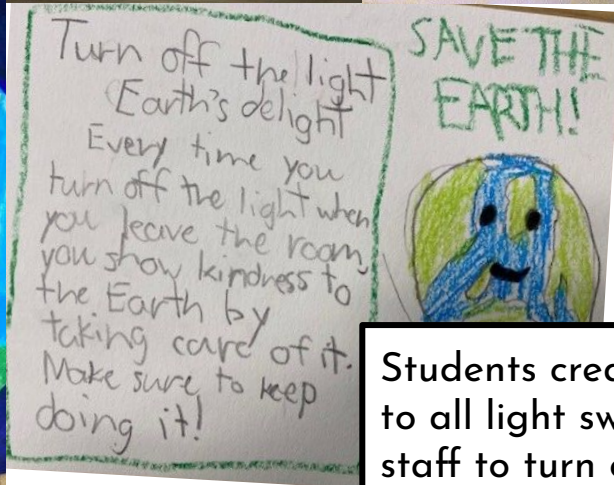 Turn off the light
Earth's delight
Every time you
turn off the light when
you leave the room,
you show kindness to
the Earth by
taking care of it.
Make sure to keep
doing it!
SAVE THE
EARTH!
Students crea
to all light sw
staff to turn